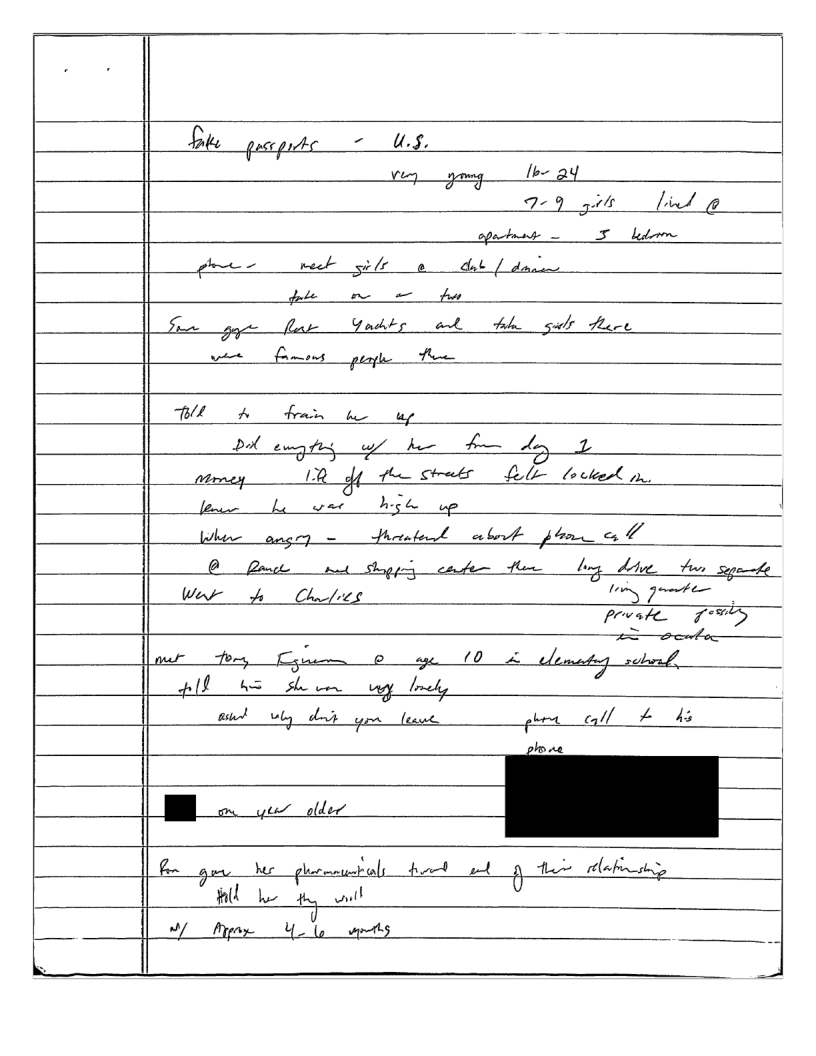 fake passports - U.S.
very young 16-24
7-9 girls lived @
apartment - 3 bedroom
phone - meet girls @ club / dinner
take on or two
Some guys Rent Yachts and take girls there
were famous people there
Told to train her up
Did everything w/ her from day 1
money off the streets felt locked in.
knew he was high up
When angry - threatend about phone call
@ Ranch and shopping center then long drive two separate
living quarter
Went to Charlies
private possibly
in ocala
met tony @ age 10 in elementary school.
told him she was very lonely
asked why don't you leave phone call to his
phone
one year older
Ron gave her pharmaceuticals toward end of their relationship
told her they will
w/ Approx 4-6 months